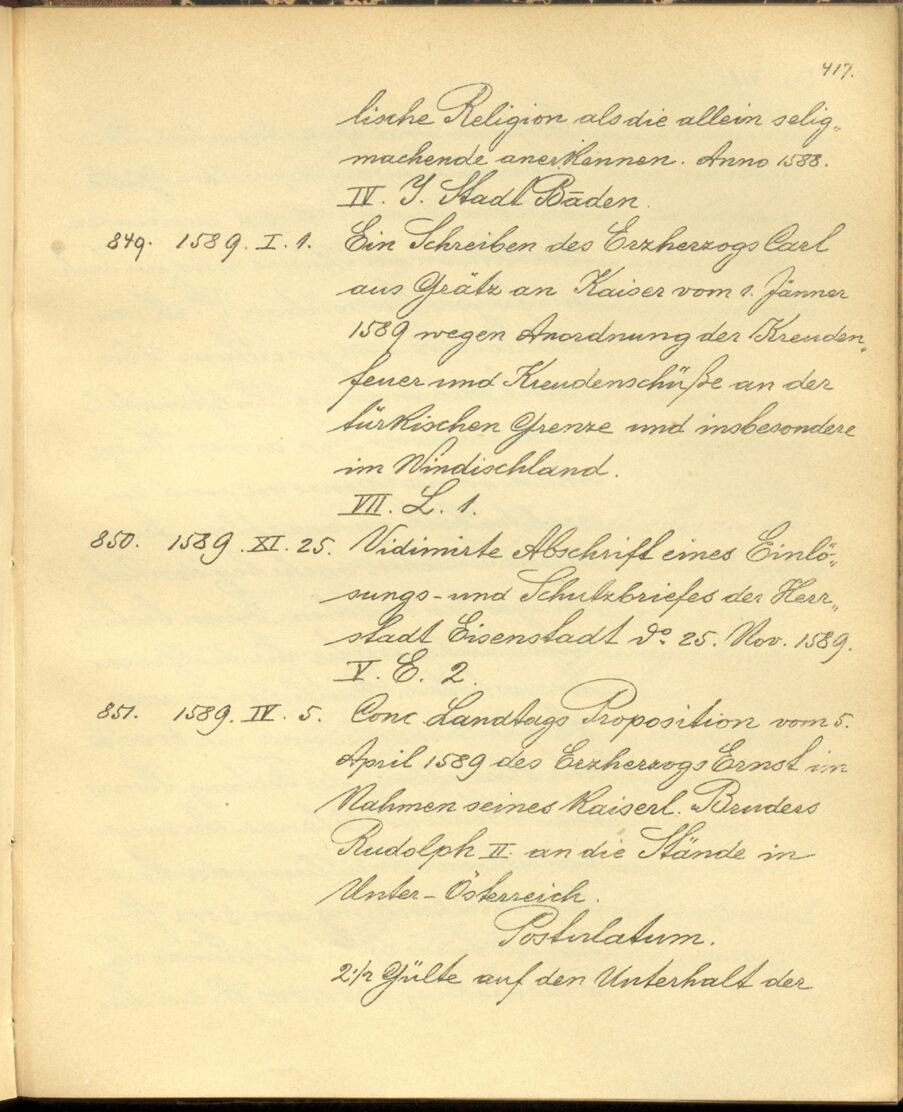 417.
lische Religion als die allein selig„
machende anerkennen. Anno 1588.
IV. J. Stadt Baden.
849. 1589. I. 1. Ein Schreiben des Erzherzogs Carl
aus Grätz an Kaiser vom 1. Jänner
1589 wegen Anordnung der Kreuden„
feuer und Kreudenschüße an der
türkischen Grenze und insbesondere
im Windischland.
VII. L. 1.
850. 1589. XI. 25. Vidimirte Abschrift eines Einlö„
sungs- und Schutzbriefes der Herr„
stadt Eisenstadt do 25. Nov. 1589.
V. E. 2.
851. 1589. IV. 5. Conc. Landtags Proposition vom 5.
April 1589 des Erzherzogs Ernst im
Nahmen seines Kaiserl. Bruders
Rudolph II. an die Stände in
Unter-Österreich.
Postulatum.
2 1/2 Gülte auf den Unterhalt der